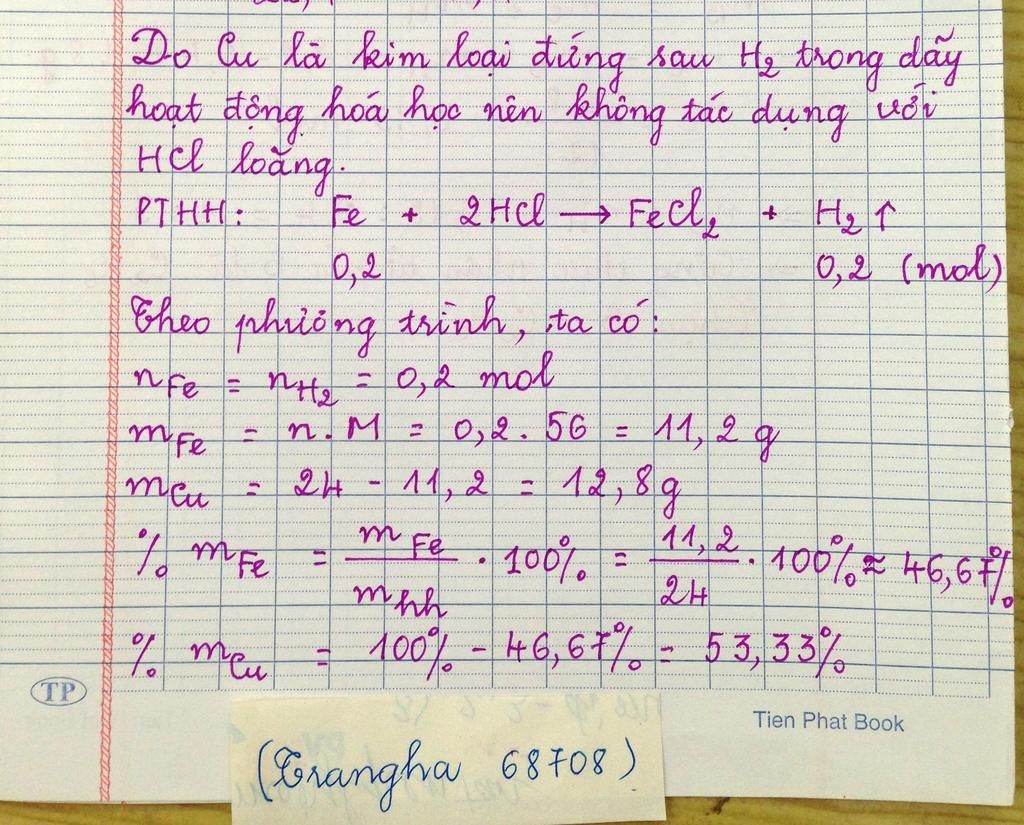 Do Cu là kim loại đứng sau H₂ trong dãy
hoạt động hoá học nên không tác dụng với
HCl loãng.
PTHH: Fe + 2HCl → FeCl₂ + H₂ ↑
0,2 0,2 (mol)
Theo phương trình, ta có:
n Fe = n H₂ = 0,2 mol
m Fe = n.M = 0,2 . 56 = 11,2 g
m Cu = 24 - 11,2 = 12,8 g
% m Fe = m Fe / m hh . 100% = 11,2 / 24 . 100% ≈ 46,67%
% m Cu = 100% - 46,67% = 53,33%
TP
Tien Phat Book
(Trangha 68708)